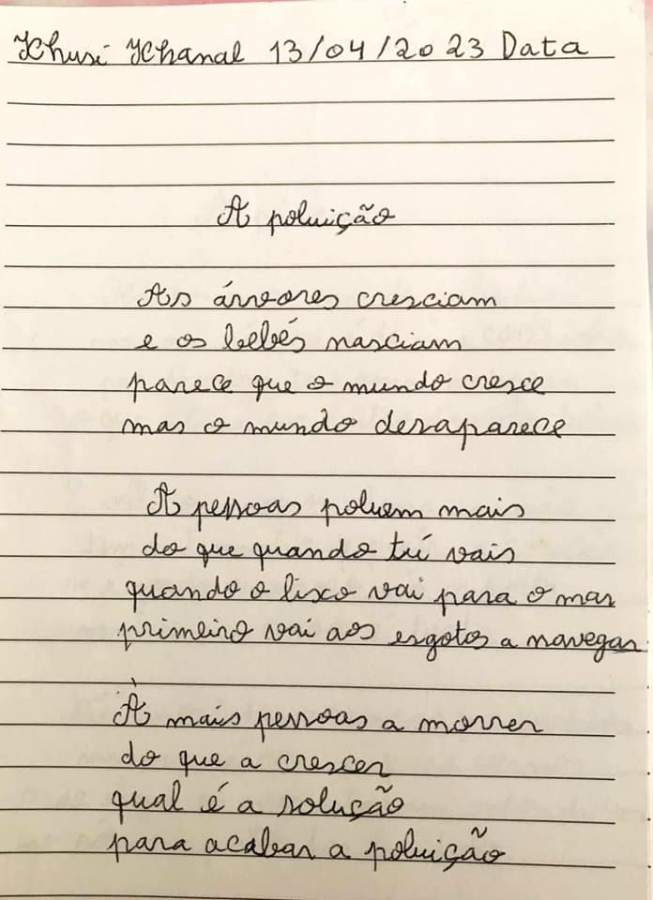 Khusi Khanal 13/04/2023 Data
A poluição
As árvores cresciam
e os bebés nasciam
parece que o mundo cresce
mas o mundo desaparece
A pessoas poluem mais
do que quando tu vais
quando o lixo vai para o mar
primeiro vai aos esgotos a navegar
À mais pessoas a morrer
do que a crescer
qual é a solução
para acabar a poluição